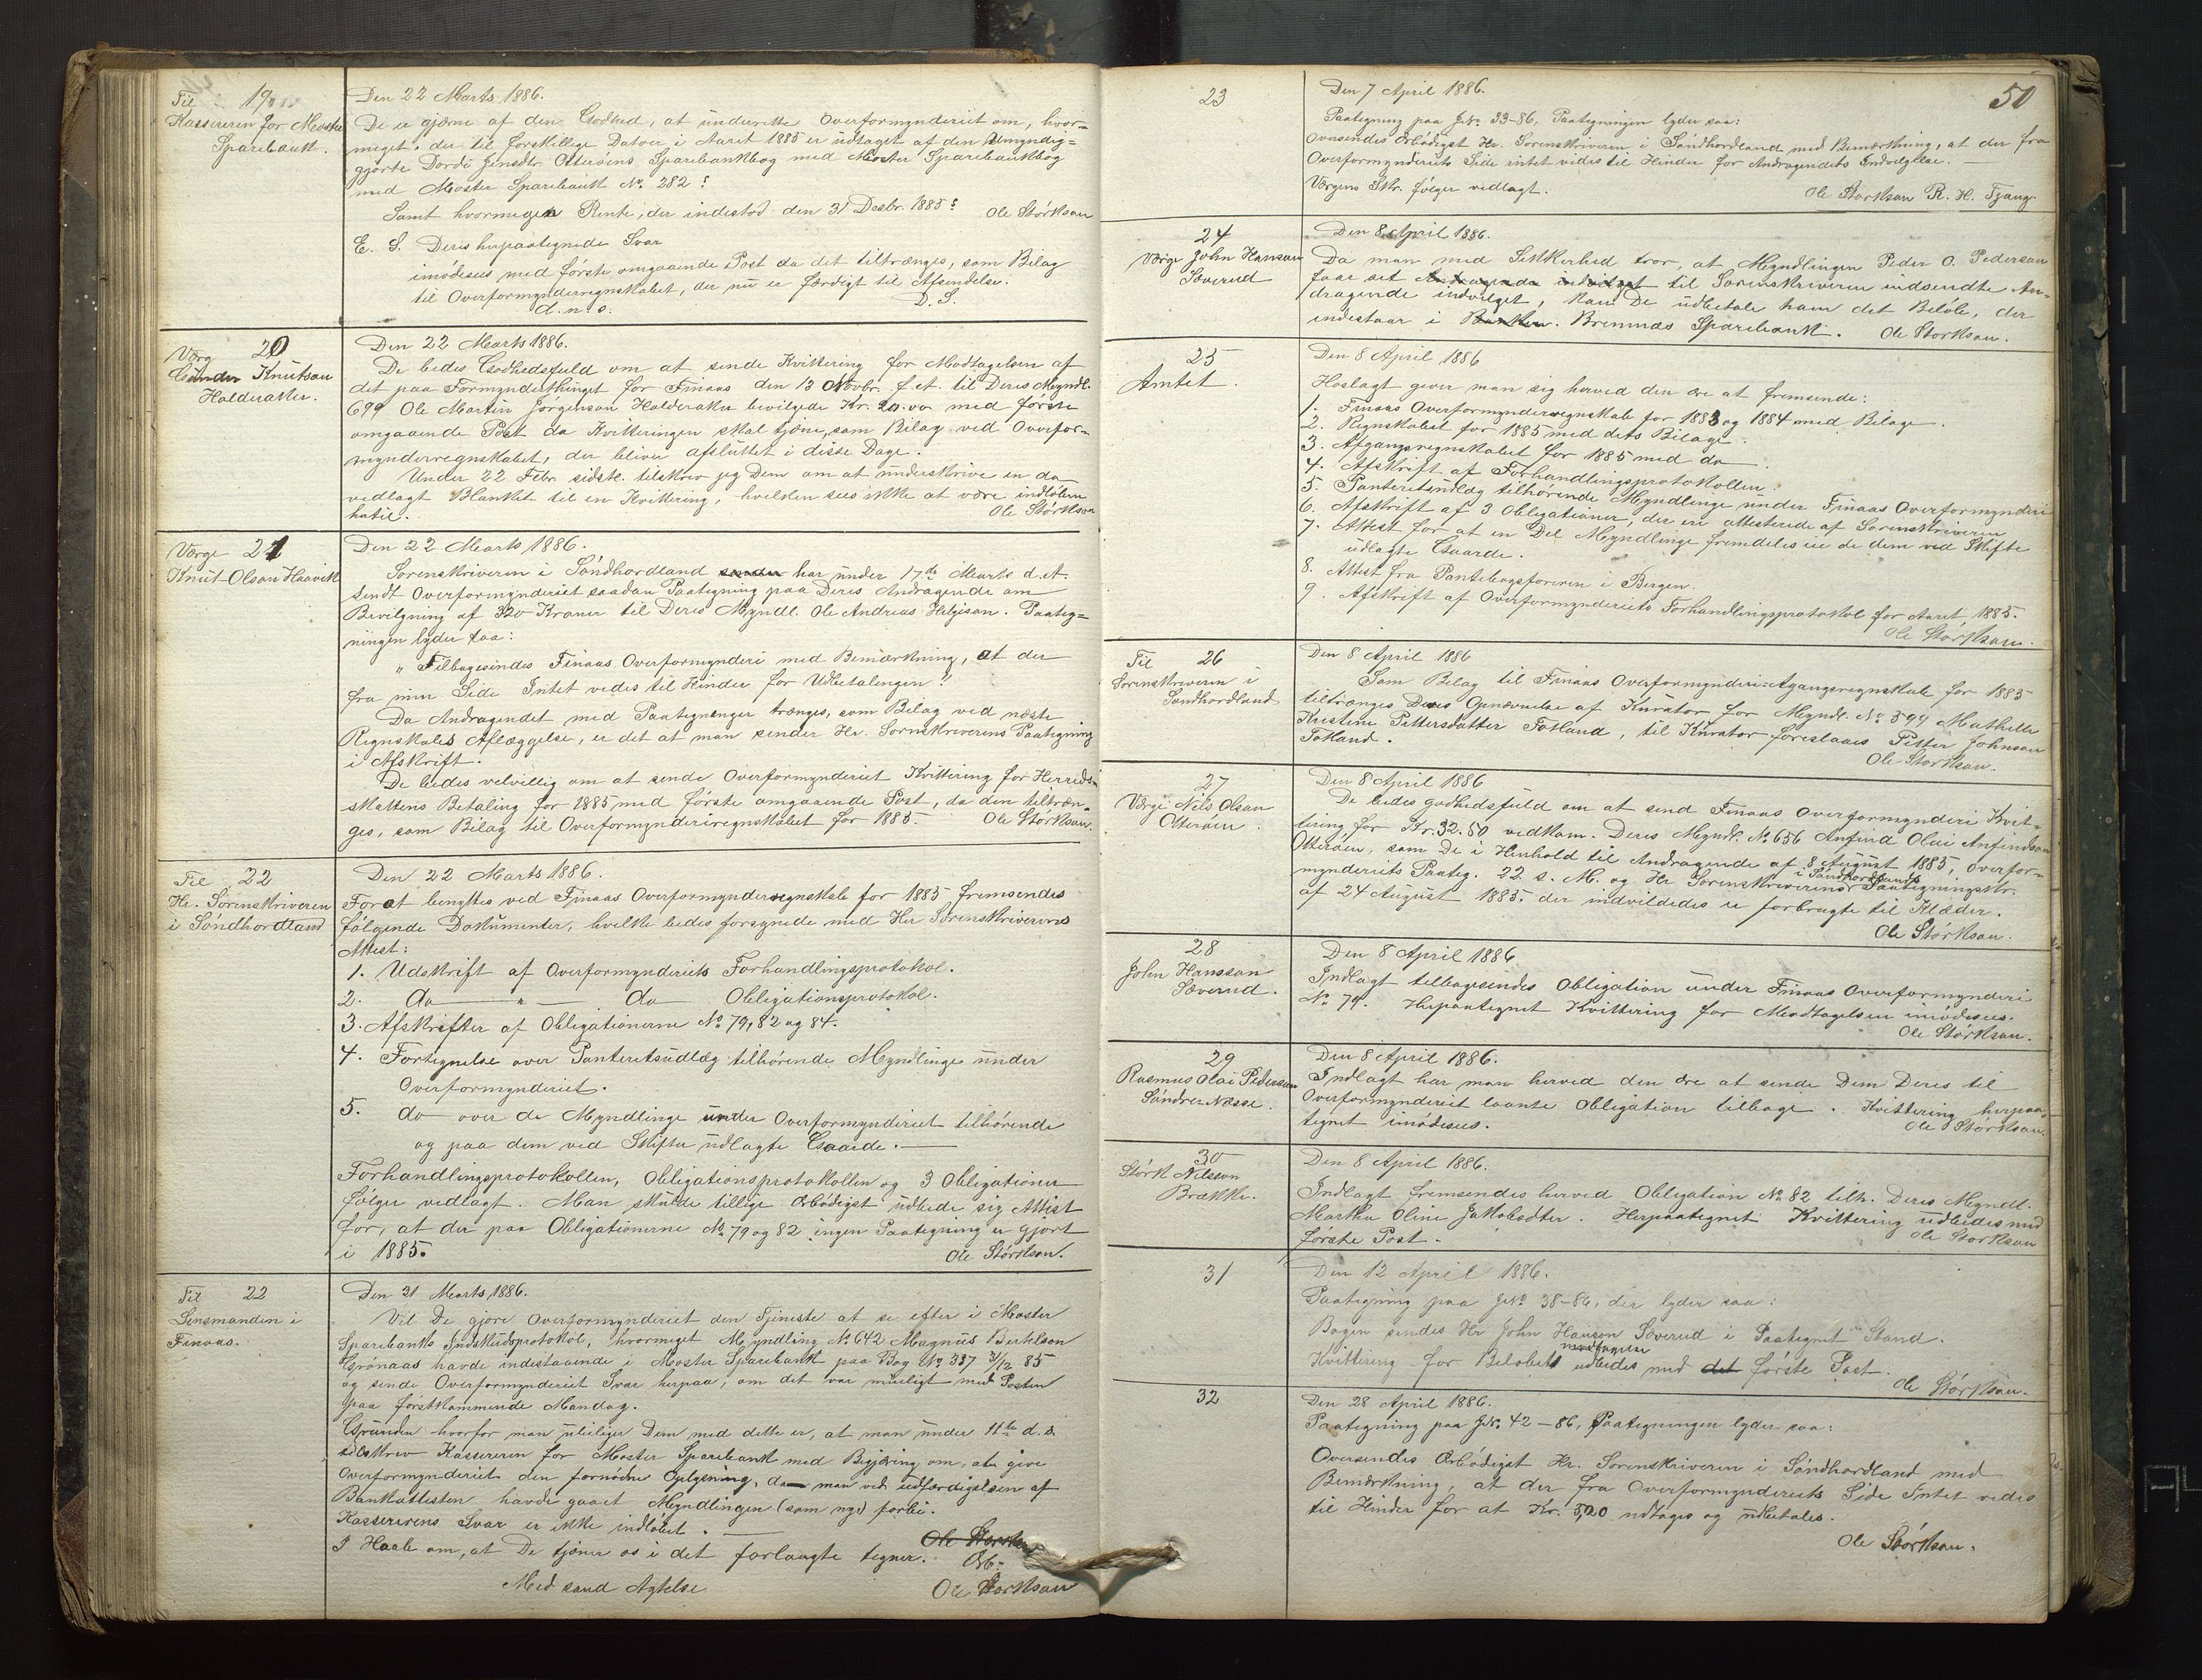 Til 19
Kassereren for Moster
Sparebank.
Den 22 Marts 1886.
De er gjærne af den Godhed, at underrette Overformynderiet om, hvor-
meget, der til forskillige Datoer i Aaret 1885 er udtaget af den Umyndig-
gjorte Dordi Jensdtr. Otterøens Sparebankbog med Moster Sparebankbog
med Moster Sparebank No. 282?
Samt hvormegen Rente, der indestod den 31 Decbr. 1885? Ole Størkson
E. S. Deres herpaategnede Svar
imødesees med første omgaaende Post da det tiltrænges, som Bilag
til Overformynderregnskabet, der nu er færdigt til Afsendelse.
d. n. o. D. S.
Værg 20
Gunder Knutson
Holderaker.
Den 22 Marts 1886.
De bedes Godhedsfuld om at sende Kvittering for Modtagelsen af
det paa Formynderthinget for Finaas den 13 Novbr. f. A. til Deres Myndl.
699 Ole Martin Jørgenson Holderaker bevilgede Kr. 20.00 med første
omgaaende Post da Kvitteringen skal tjene, som Bilag ved Overfor-
mynderregnskabet, der bliver afsluttet i disse Dage.
Under 22 Febr. sidstl. tilskrev jeg Dem om at underskrive en da
vedlagt Blanket til en Kvittering, hvilken sees ikke at være indløben
hertil. Ole Størkson
Værge 21
Knut Olson Haavik
Den 22 Marts 1886.
Sorenskriveren i Søndhordland sender har under 17de Marts d. A.
sendt Overformynderiet saadan Paategning paa Deres Andragende om
Bevilgning af 320 Kroner til Deres Myndl. Ole Andreas Helgeson. Paateg-
ningen lyder saa:
"Tilbagesendes Finaas Overformynderi med Bemærkning, at der
fra min Side Intet vides til Hinder for Udbetalingen."
Da Andragendet med Paategninger trænges, som Bilag ved næste
Regnskabs Aflæggelse, er det at man sender Hr. Sornskriverens Paategning
i Afskrift.
De bedes velvillig om at sende Overformynderiet Kvittering for Herreds-
skattens Betaling for 1885 med første omgaaende Post, da den tiltræn-
ges, som Bilag til Overformynderiregnskabet for 1885. Ole Størkson.
Til 22
Hr. Sorenskriveren
i Søndhordland
Den 22 Marts 1886.
For at benyttes ved Finaas Overformynderregnskab for 1885 fremsendes
følgende Dokumenter, hvilke bedes forsynede med Her Sorenskriverens
Attest:
1. Udskrift af Overformynderiets Forhandlingsprotokol.
2. do " do Obligationsprotokol.
3. Afskrifter af Obligationerne No. 79, 82 og 84.
4. Fortegnelse over Panteretsudlæg tilhørende Myndlinge under
Overformynderiet.
5. do over de Myndlinge under Overformynderiet tilhørende
og paa dem ved Skifter udlagte Gaarde.
Forhandlingsprotokollen, Obligationsprotokollen og 3 Obligationer
følger vedlagt. Man skulde tillige ærbødigst udbede sig Attest
for, at der paa Obligationerne No. 79 og 82 ingen Paategning er gjort
i 1885. Ole Størkson.
Til 22
Lensmanden i
Finaas.
Den 31 Marts 1886.
Vil De gjøre Overformynderiet den Tjeneste at se efter i Moster
Sparebanks Indskudsprotokol, hvormeget Myndling No. 642 Magnus Bertelson
Grønaas havde indestaaende i Moster Sparebank paa Bog No. 337 31/12 85
og sende Overformynderiet Svar herpaa, om det var muligt med Posten
paa førstkommende Mandag.
Grunden hvorfor man uleiliger Dem med dette er, at man under 11te d. s.
tilskrev Kassereren for Moster Sparebank med Begjæring om, at give
Overformynderiet den fornødne Oplysning, da man ved udfærdigelsen af
Bankattesten havde gaaet Myndlingen (som nye) forbi.
Kassererens Svar er ikke indløbet.
I Haab om, at De tjener os i det forlangte tegner. Ole Størkson
Ærb.
Med sand Agtelse Ole Størkson
50
23
Den 7 April 1886.
Paategning paa J.No. 33-86, Paategningen lyder saa:
Oversendes Ærbødigst Hr. Sorenskriveren i Søndhordland med Bemærkning, at der fra
Overformynderiets Side intet vides til Hinder for Andragendets Indvilgelse.
Værgens Skr. følger vedlagt. Ole Størkson R. H. Tjang.
24
Værge John Hanson
Søverud
Den 8 April 1886.
Da man med Sikkerhed tror, at Myndlingen Peder O. Pederson
faar set Andragende indvilget til Sorenskriveren indsendte An-
dragende indvilget, kan De udbetale ham det Beløb, der
indestaar i Banken. Bremnæs Sparebank. Ole Størkson.
25
Amtet.
Den 8 April 1886
Hoslagt giver man sig herved den ære at fremsende:
1. Finaas Overformynderregnskab for 1883 og 1884 med Bilage.
2. Regnskabet for 1885 med dets Bilage.
3. Afgangsregnskabet for 1885 med do.
4. Afskrift af Forhandlingsprotokollen.
5. Panteretsudlæg tilhørende Myndlinge under Finaas Overformynderi
6. Afskrift af 3 Obligationer, der ere attesterede af Sorenskriveren
7. Attest for at en Del Myndlinge fremdeles eie de dem ved Skifte
udlagte Gaarde.
8. Attest fra Pantebogsføreren i Bergen.
9. Afskrift af Overformynderiets Forhandlingsprotokol for Aaret 1885.
Ole Størkson.
Til 26
Sorenskriveren i
Søndhordland
Den 8 April 1886
Som Bilag til Finaas Overformynderi-Agangsregnskab for 1885
tiltrænges Deres Opnævnelse af Kurator for Myndl. No. 594 Mathelle
Kristine Pettersdatter Totland, til Kurator foreslaaes Petter Johnson
Totland. Ole Størkson.
27
Værge Nils Olson
Otterøen.
Den 8 April 1886
De bedes godhedsfuld om at send Finaas Overformynderi Kvit-
tering for Kr. 32.50 vedkom. Deres Myndl. No. 656 Anfind Olai Anfindson
Otterøen, som De i Henhold til Andragende af 8 August 1885, Overfor-
mynderiets Paateg. 22 s. M. og Hr Sorenskriverens i Søndhordlands Paategningsskr.
af 24 August 1885. der indvildedes er forbrugte til Klæder.
Ole Størkson.
28
John Hansson
Søverud.
Den 8 April 1886
Indlagt tilbagesendes Obligation under Finaas Overformynderi
No 79. Herpaategnet Kvittering for Modtagelsen imødesees.
Ole Størkson.
29
Rasmus Olai Pederson
Søndre Næsse.
Den 8 April 1886.
Indlagt har man herved den ære at sende Dem Deres til
Overformynderiet laante Obligation tilbage. Kvittering herpaa-
tegnet imødesees. Ole Størkson.
30
Størk Nilsson
Brække.
Den 8 April 1886.
Indlagt fremsendes herved Obligation No 82 tilh. Deres Myndl.
Martha Oline Jakobsdter. Herpaategnet Kvittering udbedes med
første Post. Ole Størkson
31
Den 12 April 1886.
Paategning paa J.No. 38-86, der lyder saa:
Bogen sendes Hr John Hansen Søverud i Paategnet Stand.
Kvittering for Beløbets modtagelse udbedes med det første Post.
Ole Størkson.
32
Den 28 April 1886.
Paategning paa J.No. 42-86, Paategningen lyder saa:
Oversendes Ærbødigst Hr. Sorenskriveren i Søndhordland med
Bemærkning, at der fra Overformynderiets Side Intet vides
til Hinder for at Kr. 3,20 udtages og udbetales.
Ole Størkson.